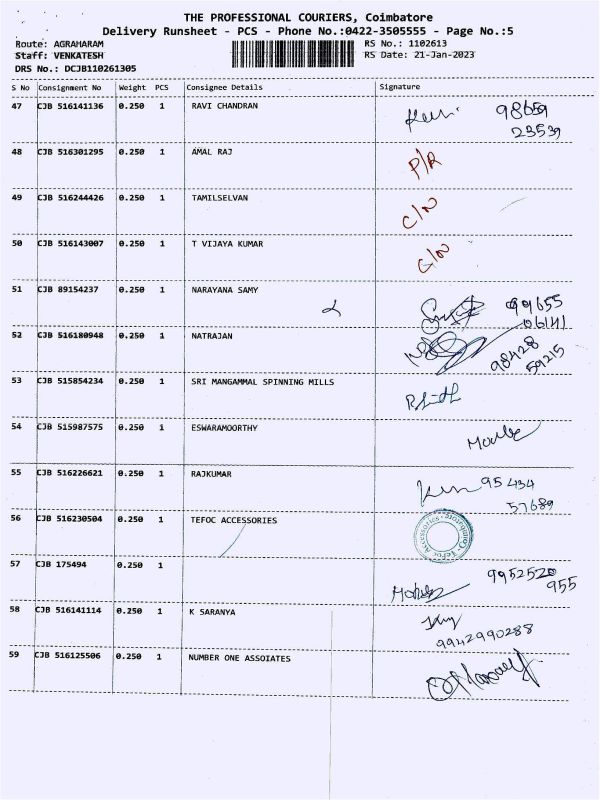 THE PROFESSIONAL COURIERS, Coimbatore
Delivery Runsheet - PCS - Phone No.:0422-3505555 - Page No.:5
Route: AGRAHARAM RS No.: 1102613
Staff: VENKATESH RS Date: 21-Jan-2023
DRS No.: DCJB110261305
S No Consignment No Weight PCS Consignee Details Signature
47 CJB 516141136 0.250 1 RAVI CHANDRAN 98659
23539
48 CJB 516301295 0.250 1 AMAL RAJ P/R
49 CJB 516244426 0.250 1 TAMILSELVAN C/N
50 CJB 516143007 0.250 1 T VIJAYA KUMAR C/N
51 CJB 89154237 0.250 1 NARAYANA SAMY 99655
06141
52 CJB 516180948 0.250 1 NATRAJAN 98428
59215
53 CJB 515854234 0.250 1 SRI MANGAMMAL SPINNING MILLS
54 CJB 515987575 0.250 1 ESWARAMOORTHY
55 CJB 516226621 0.250 1 RAJKUMAR 95434
57689
56 CJB 516230504 0.250 1 TEFOC ACCESSORIES Tefoc Accessories Coimbatore
57 CJB 175494 0.250 1 9952520
955
58 CJB 516141114 0.250 1 K SARANYA
9942990288
59 CJB 516125506 0.250 1 NUMBER ONE ASSOIATES